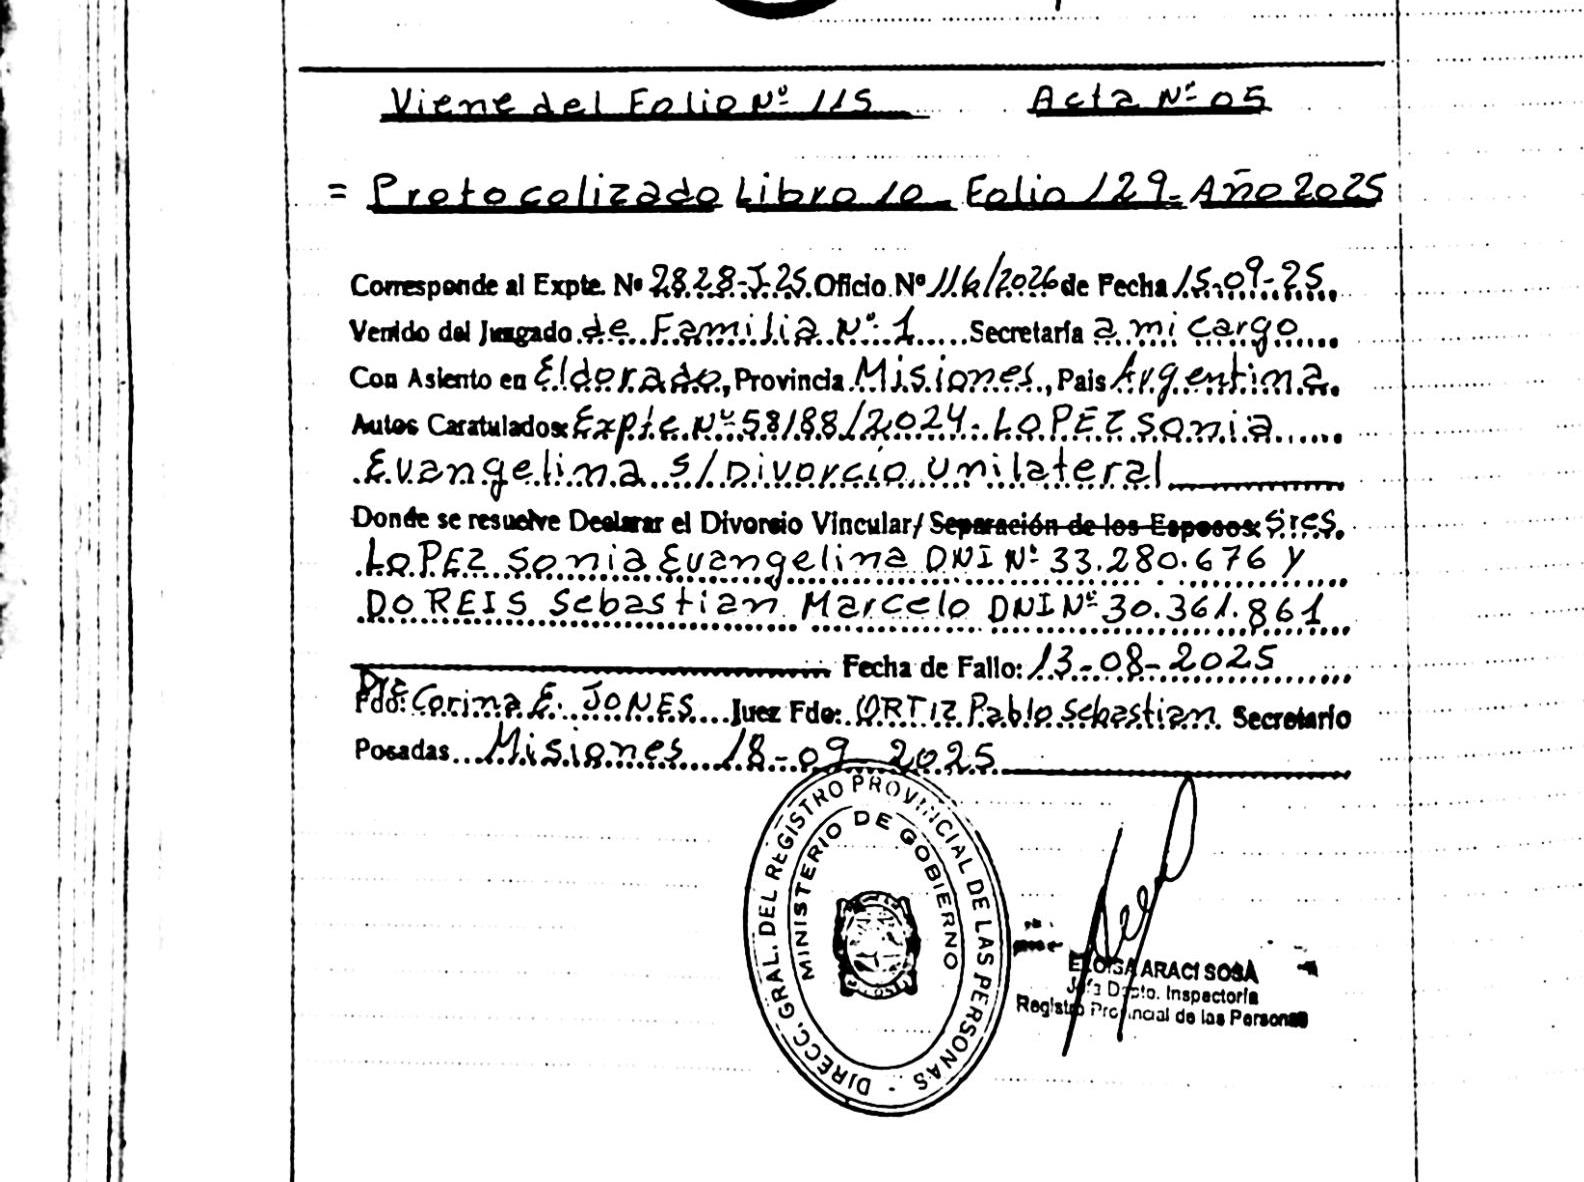 Viene del Folio Nº 115 Acta Nº 05
= Protocolizado Libro 10 - Folio 129 - Año 2025
Corresponde al Expte. Nº 2828-J-25. Oficio Nº 116/2026 de Fecha 15-09-25.
Venido del Juzgado de Familia Nº 1 Secretaría a mi cargo
Con Asiento en Eldorado, Provincia Misiones, Pais Argentina.
Autos Caratulados: Expte Nº 58188/2024. LOPEZ Sonia
Evangelina s/Divorcio Unilateral
Donde se resuelve Declarar el Divorcio Vincular/ Separación de los Esposos: Sres.
LOPEZ Sonia Evangelina DNI Nº 33.280.676 y
DO REIS Sebastian Marcelo DNI Nº 30.361.861
Fecha de Fallo: 13-08-2025
Fdo: Dra Corina E. JONES Juez Fdo: ORTIZ Pablo Sebastian. Secretario
Posadas Misiones 18-09-2025
DIRECC. GRAL. DEL REGISTRO PROVINCIAL DE LAS PERSONAS -
MINISTERIO DE GOBIERNO
ELOISA ARACI SOSA
Jefa Dpto. Inspectoría
Registro Provincial de las Personas